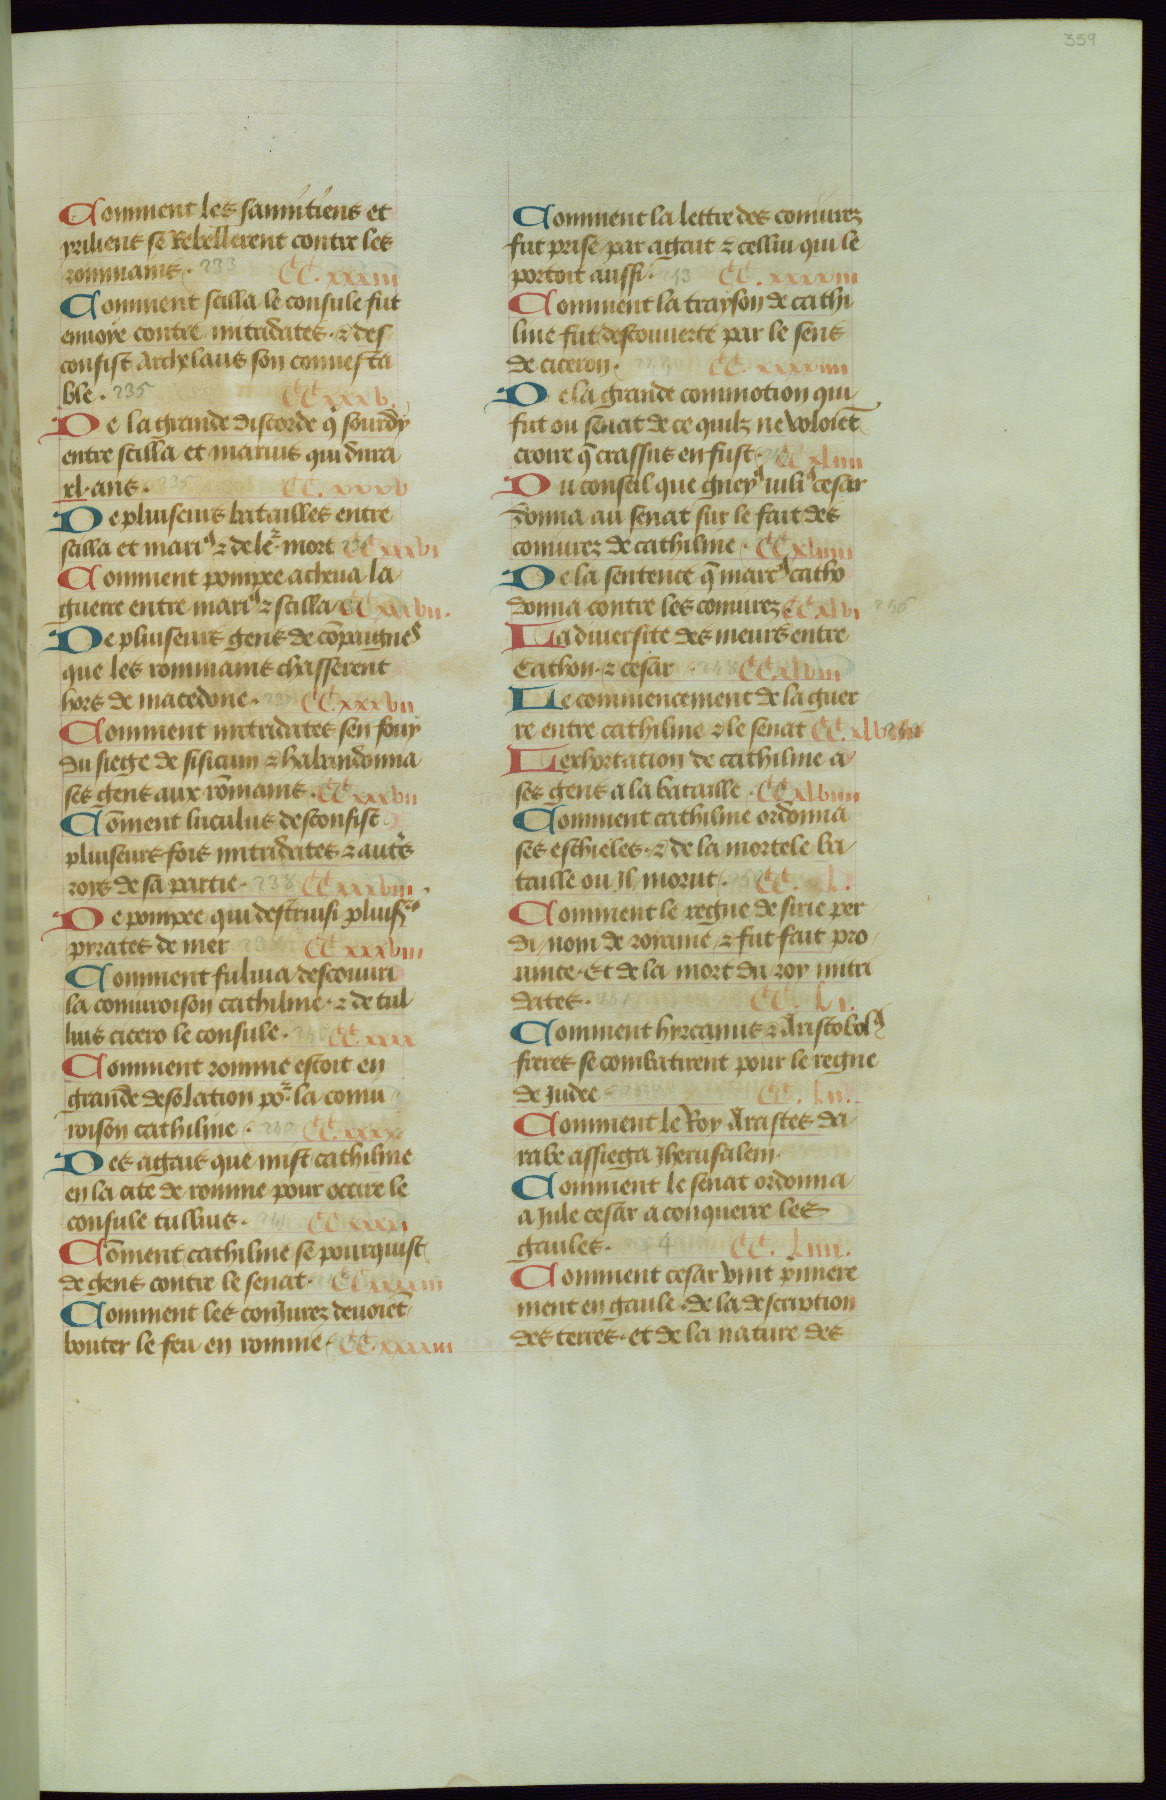 359
Comment les samnitiens et
ytiliens se Rebellerent contre les
rommains . 233 CC. xxxiii
Comment scilla le consule fut
enuoye contre mitridates . ⁊ des
confist Archelaus son connesta
ble . 235 CC xxx v.
De la grande discorde q̄ sourdy
entre scilla et marius qui dura
xl . ans . 235 CC. xxxv
De pluiseurs batailles entre
scilla et mariꝰ ⁊ de leʳ mort CC xxxvi
Comment pompee acheua la
guerre entre mariꝰ ⁊ scilla CC xxxvii.
De pluiseurs gens de cōpaignes
que les rommains chasserent
hors de macedone . CC xxxvii
Comment mitridates sen fouy
du siege de sisicum ⁊ habandonna
ses gens aux rōmains . CC xxxvii
Cōment luculus desconfist
pluiseurs fois mitridates ⁊ autˢ
roys de sa partie . 238 CC xxxviii .
De pompee qui destruisi pluisʳˢ
pyrates de mer CC xxxviii
Comment fuluia descouuri
la coniuroison cathiline . ⁊ de tul
lius cicero le consule . 240 CC xxxx
Comment romme estoit en
grande desolation poʳ la coniu
roison cathiline . 240 CC. xxxx
Des agais que mist cathiline
en la cite de romme pour occire le
consule tullius . 241 CC xxxxi
Cōment cathiline se pourquist
de gens contre le senat . CC xxxxiii
Comment les coniurez deuoiēt
bouter le feu en romme . CC. xxxxiii
Comment la lettre des coniurez
fut prise par agait ⁊ cellui qui le
portoit aussi . 243 CC. xxxxiii
Comment la trayson de cathi
line fut descouuerte par le sens
de ciceron . CC. xxxxiiii
De la grande commotion qui
fut ou senat de ce quilz ne voloiēt
croire q̄ crassus en fust . CC xliiii
Du conseil que gneyꝰ iuliꝰ cesar
donna au senat sur le fait des
coniurez de cathiline . CC xliiii
De la sentence q̄ marcꝰ catho
donna contre les coniurez . CC xlvi 246
La diuersite des meurs entre
Cathon . ⁊ cesar . 248 CC xlviii
Le commencement de la guer
re entre cathiline ⁊ le senat CC. xlviii
Lexhortation de cathiline a
ses gens a la bataille . CC xlviiii
Comment cathiline ordonna
ses eschieles . ⁊ de la mortele ba
taille ou Il morut . CC. L.
Comment le regne de sirie per
di nom de royame / ⁊ fut fait pro
uince . Et de la mort du roy mitri
dates . CC. L i.
Comment hyrcanus ⁊ Aristobolꝰ
freres se combatirent pour le regne
de Judee . CC. L ii.
Comment le Roy Arastes da
rabe assiega Jherusalem .
Comment le senat ordonna
a Jule cesar a conquerre les
gaules . CC. Liiii.
Comment cesar vint p̄miere
ment en gaule . de la description
des terres . et de la nature des